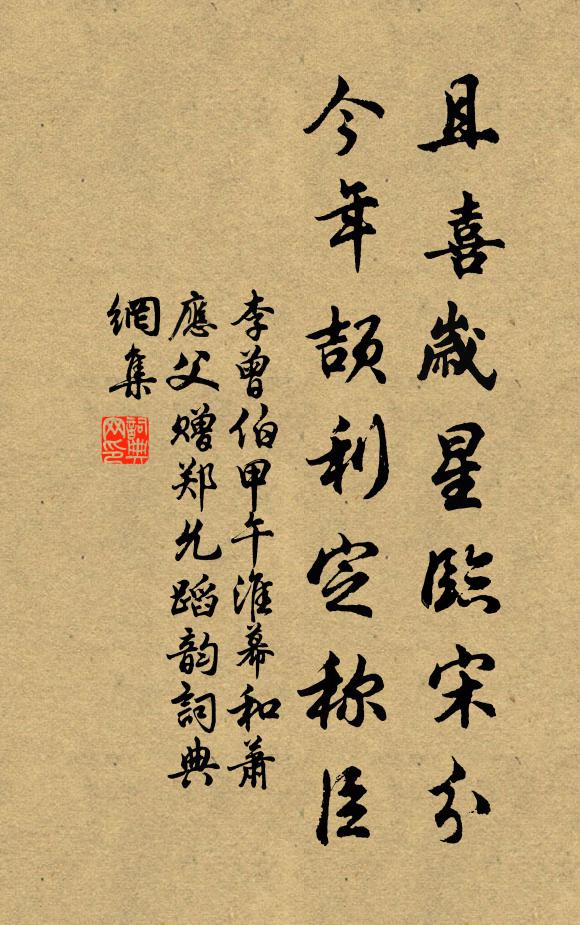 且喜歲星臨宋分
今年頡利定称臣
李曾伯甲午淮幕和萧
應父赠郑允蹈韵詞典
網集
詞典網印